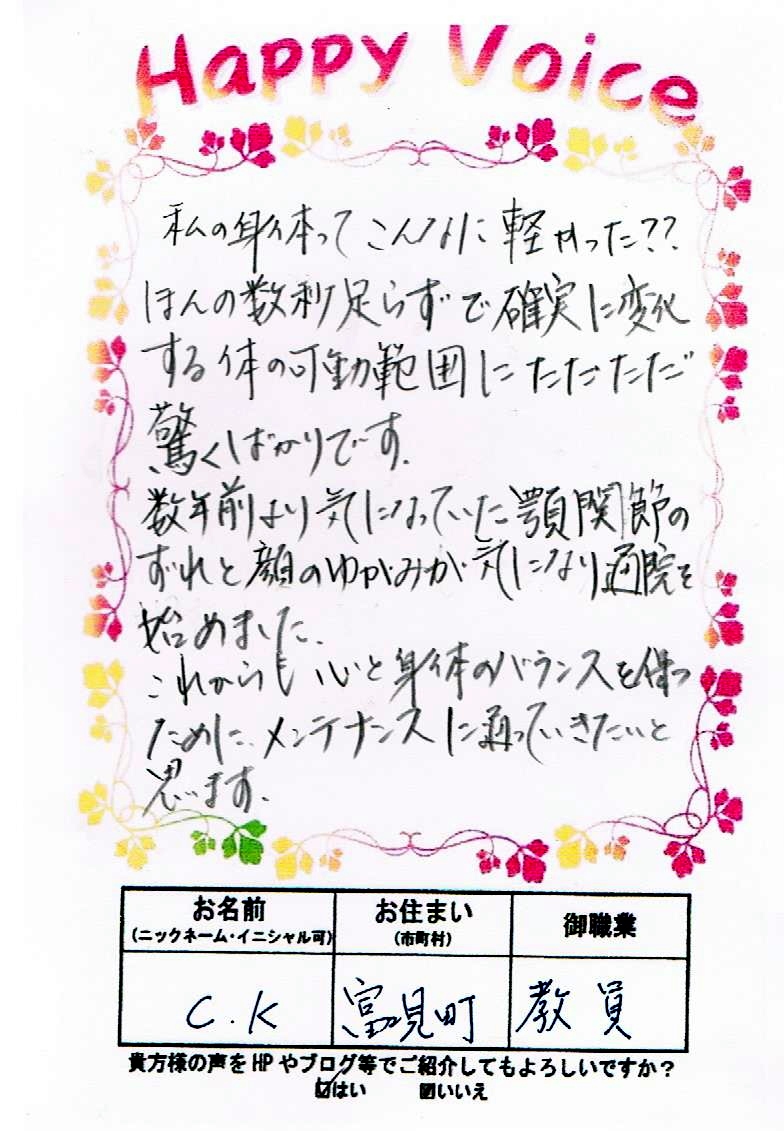 Happy Voice
私の身体ってこんなに軽やった??
ほんの数秒足らずで確実に変化
する体の可動範囲にただただ
驚くばかりです.
数年前より気になっていた顎関節の
ずれと顔のゆがみが気になり通院を
始めました.
これからも心と身体のバランスを保つ
ために、メンテナンスに通っていきたいと
思います.
お名前 お住まい 御職業
(ニックネーム・イニシャル可) (市町村)
C.K 富見町 教員
貴方様の声をHPやブログ等でご紹介してもよろしいですか?
☑はい ☑いいえ